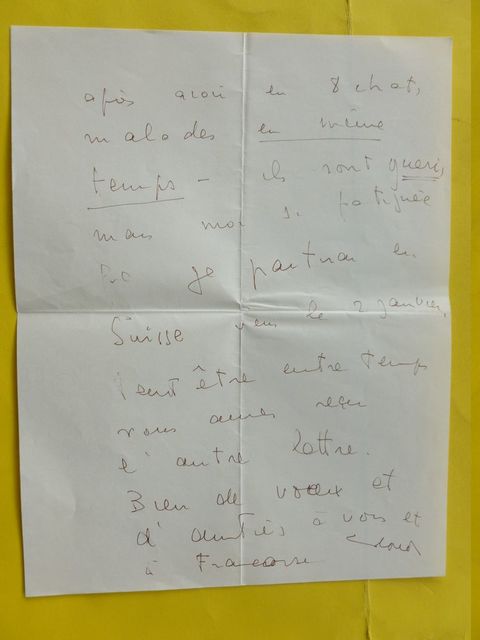 après avoir eu 8 chats
malades en même
temps - ils sont guéris,
mais moi si fatiguée
je partirai en
Suisse vers le 2 janvier,
Peut être entre temps
vous aurez reçu
l'autre lettre.
Bien de voeux et
d'amitiés à vous et
à